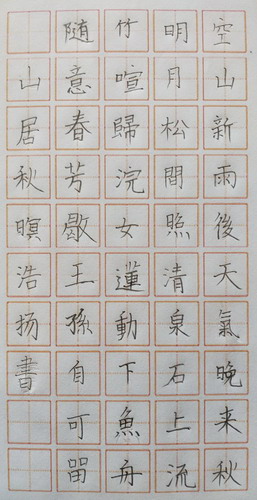 空山新雨後天氣晚来秋
明月松間照清泉石上流
竹喧歸浣女蓮動下魚舟
随意春芳歇王孫自可留
山居秋暝浩扬書